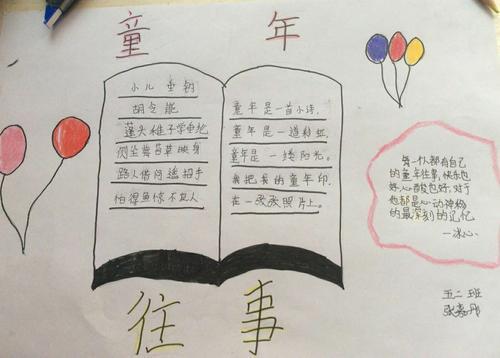 童年
小儿垂钓
胡令能
蓬头稚子学垂纶
侧坐莓苔草映身
路人借问遥招手
怕得鱼惊不应人
童年是一首小诗.
童年是一道彩虹.
童年是一缕阳光。
我把我的童年印.
在一张张照片上。
每一个人都有自己
的童年往事,快乐也
好,心酸也好,对于
他都是心动神移
的最深刻的记忆
—冰心.
往事
五二班